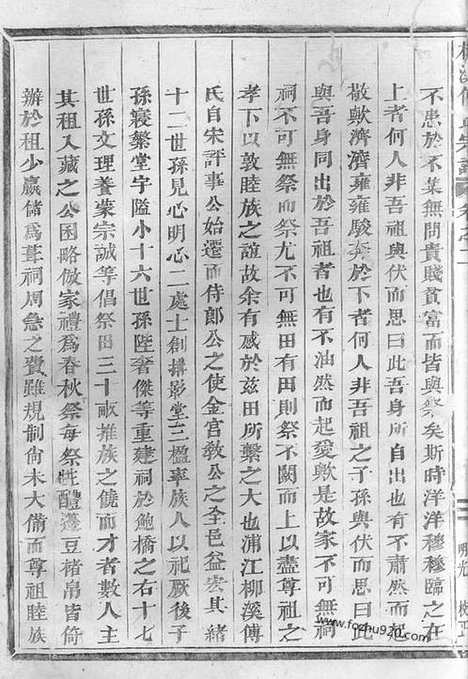 不患於不葉無問貴賤貧富而皆與祭矣斯時洋洋穆穆臨之在
上者何人非吾祖與伏而思曰此吾身所自出也有不肅然而起
敬歟濟濟雍雍駿奔於下者何人非吾祖之子孫與伏而思曰此
與吾身同出於吾祖者也有不油然而起愛歟是故家不可無祠
祠不可無祭而祭尤不可無田有田則祭不闕而上以盡尊祖之
孝下以敦睦族之誼故余有感於茲田所繫之大也浦江柳溪傅
氏自宋評事公始遷而侍郎公之使金宮教公之全邑益安其緒
十二世孫見心明心二處士創搆影堂三楹率族人以祀厥後子
孫寖繁堂宇隘小十六世孫陞奢傑等重建祠於鮑橋之右十七
世孫文理養蒙宗誠等倡祭田三十畝推族之饒而才者數人主
其租入藏之公囷略倣家禮爲春秋祭每祭牲醴籩豆楮帛皆倚
辦於租少嬴儲爲葺祠周急之費雖規制尙未大備而尊祖睦族
www.fozhu920.com